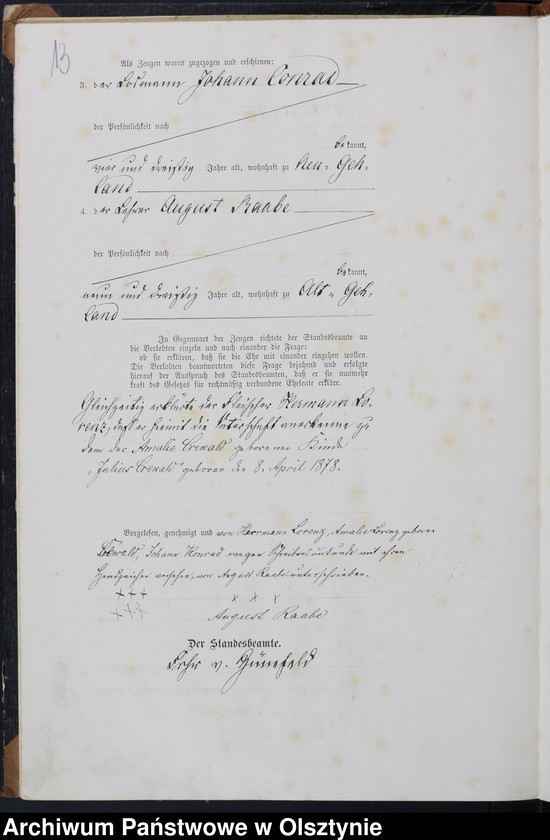 13
Als Zeugen waren zugezogen und erschienen:
3. der Losmann Johann Conrad
der Persönlichkeit nach
be kannt,
vier und dreißig Jahre alt, wohnhaft zu Neu-Geh-
land
4. der Lehrer August Raabe
der Persönlichkeit nach
be kannt,
neun und dreißig Jahre alt, wohnhaft zu Alt-Geh-
land
In Gegenwart der Zeugen richtete der Standesbeamte an
die Verlobten einzeln und nach einander die Frage:
ob sie erklären, daß sie die Ehe mit einander eingehen wollen.
Die Verlobten beantworteten diese Frage bejahend und erfolgte
hierauf der Ausspruch des Standesbeamten, daß er sie nunmehr
kraft des Gesetzes für rechtmäßig verbundene Eheleute erkläre.
Gleichzeitig erklärte der Fleischer Hermann Lo-
renz, daß er hiermit die Vaterschaft anerkenne zu
dem der Amalie Crewald geborenen Kinde
„Julius Crewald" geboren den 8. April 1878.
Vorgelesen, genehmigt und von Herrmann Lorenz, Amalie Lorenz geborne
Johann Konrad wegen Schreibensunkunde mit ihren
Handzeichen versehen, von August Raabe unterschrieben.
+++
x x x
+++
August Raabe
Der Standesbeamte.
Frhr v. Günefeld
Archiwum Państwowe w Olsztynie